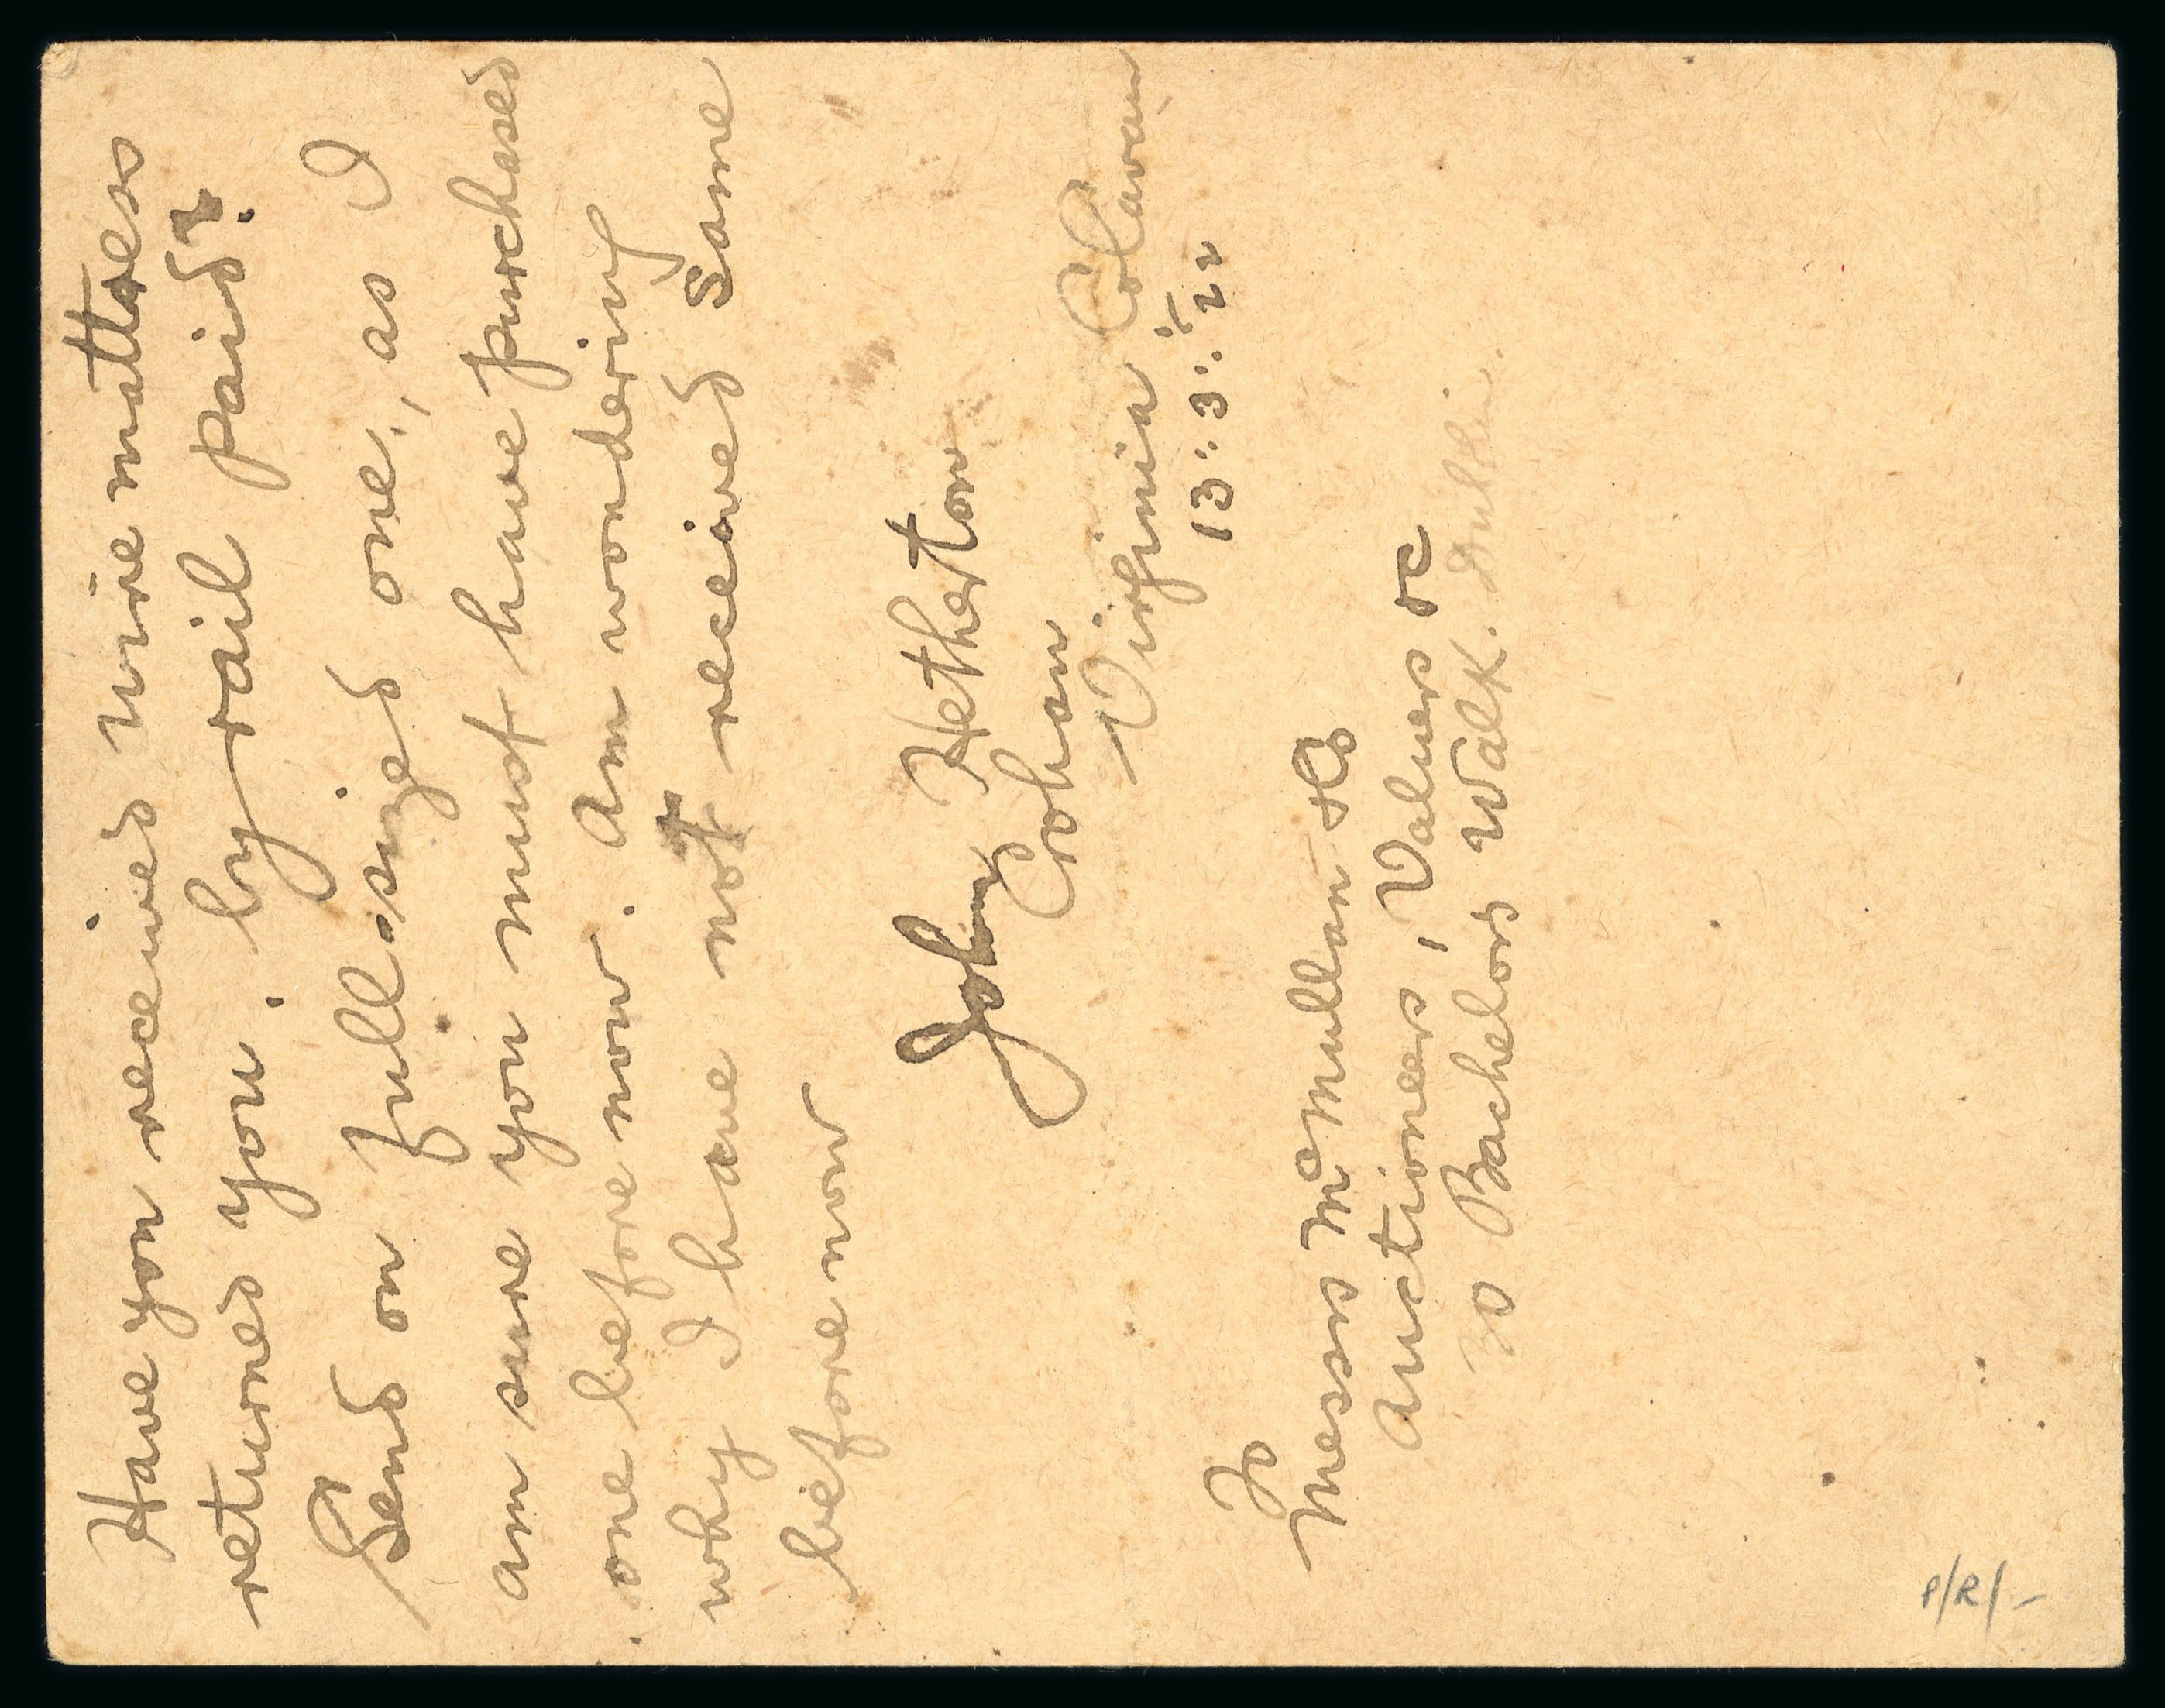 Have you received wire mattress
returned you. by rail paid?
Send on full-sized one, as I
am sure you must have purchased
one before now. Am wondering
why I have not received same
before now
John Hetherton
Crohan
Virginia Co Cavan
13:3:'22
To
Messrs McMullan & Co
Auctioneers, Valuers &c
30 Bachelors Walk. Dublin.